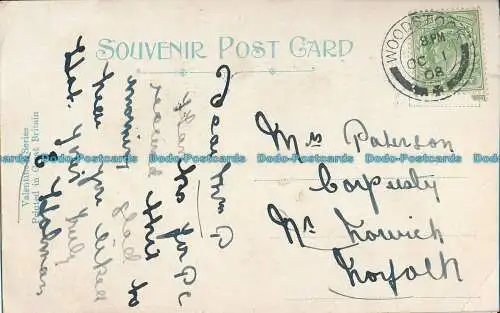 SOUVENIR POST CARD
WOODSTO
8 PM
OC 1
08
Mrs Paterson
Corpusty
Nr Norwich
Norfolk
Dear Mrs P
Thanks for Pc
received
morning glad to
hear you liked
Yours truly
Holman
Valentine's Series
Printed in Great Britain
Dodo-Postcards Dodo-Postcards Dodo-Postcards Dodo-Postcards Dodo-Postcards